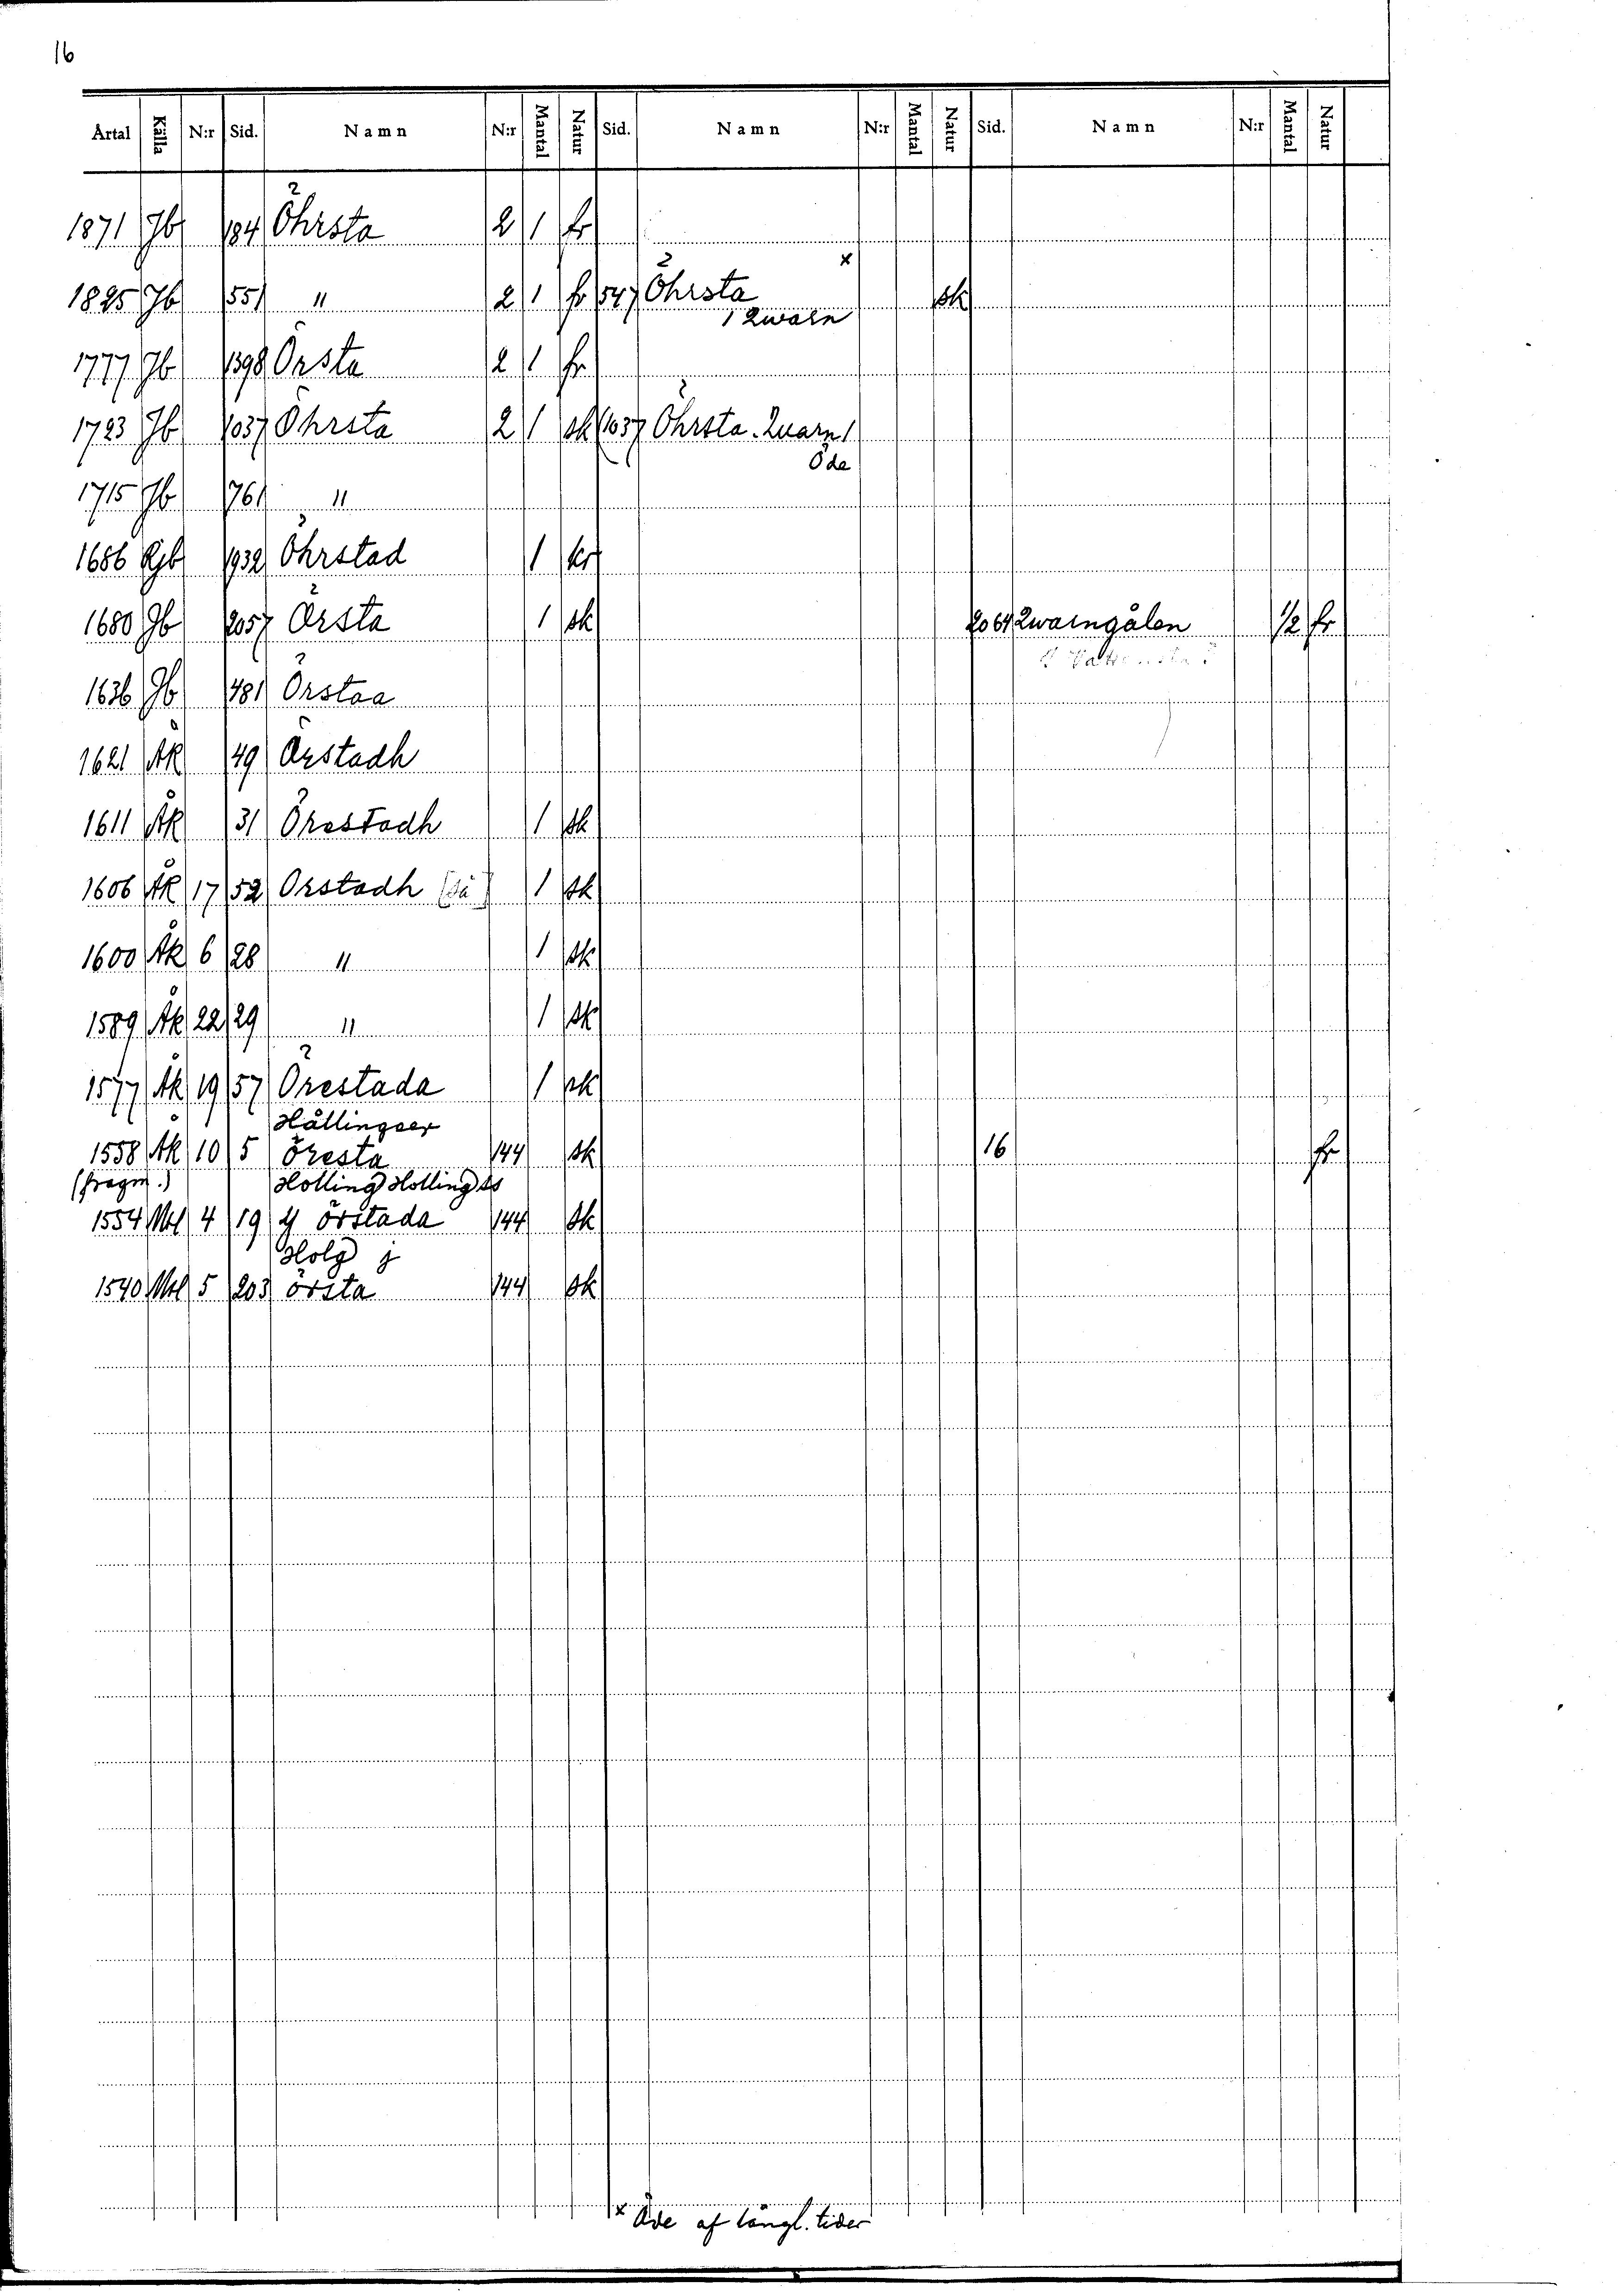 16
Årtal Källa N:r Sid. Namn N:r Mantal Natur Sid. Namn N:r Mantal Natur Sid. Namn N:r Mantal Natur
1871 Jb 184 Öhrsta 2 1 fr
1825 Jb 551 " 2 1 fr 547 Öhrsta x sk
1 Qwarn
1777 Jb 1398 Örsta 2 1 fr
1723 Jb 1037 Öhrsta 2 1 sk (1037 Öhrsta Quarn 1
Öde
1715 Jb 761 "
1686 Rjb 1932 Öhrstad 1 kr
1680 Jb 2057 Örsta 1 sk 2064 Qwarngålen 1/2 fr
1636 Jb 481 Örstaa
1621 Åk 49 Örstadh
1611 Åk 31 Örestadh 1 sk
1606 Åk 17 52 Orstadh [så] 1 sk
1600 Åk 6 28 " 1 sk
1589 Åk 22 29 " 1 sk
1577 Åk 19 57 Örestada 1 sk
Hållingser
1558 Åk 10 5 Öresta 144 sk 16 fr
(fragm.) Holling Hollingss
1554 Mrl 4 19 y örstada 144 sk
Holg j
1540 Mrl 5 203 örsta 144 sk
x Öde af långl. tider